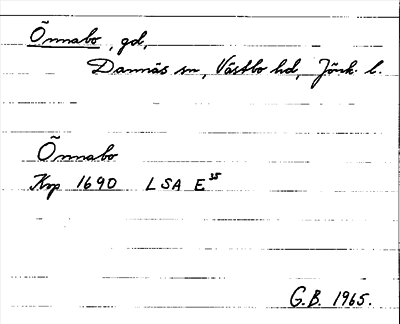 Õnnabo, gd,
Dannäs sn, Västbo hd, Jönk. l.
Õnnabo
Krp 1690 LSA E³⁵
G.B. 1965.